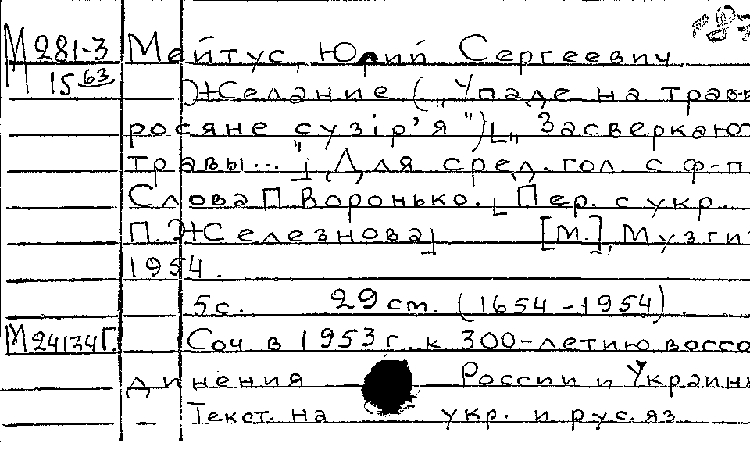 М281-3 Мейтус, Юрий Сергеевич
15 63 Желание („Упаде на трав
росяне сузір'я")[„Засверкают
травы..."], Для сред. гол. с ф-п.
Слова П. Воронько. [Пер. с укр.
П. Железнова] [М.], Музгиз
1954.
5 с. 29 см. (1654-1954)
М24134Г. Соч в 1953 г. к 300-летию воссо
динения России и Украины
Текст. на укр. и рус. яз